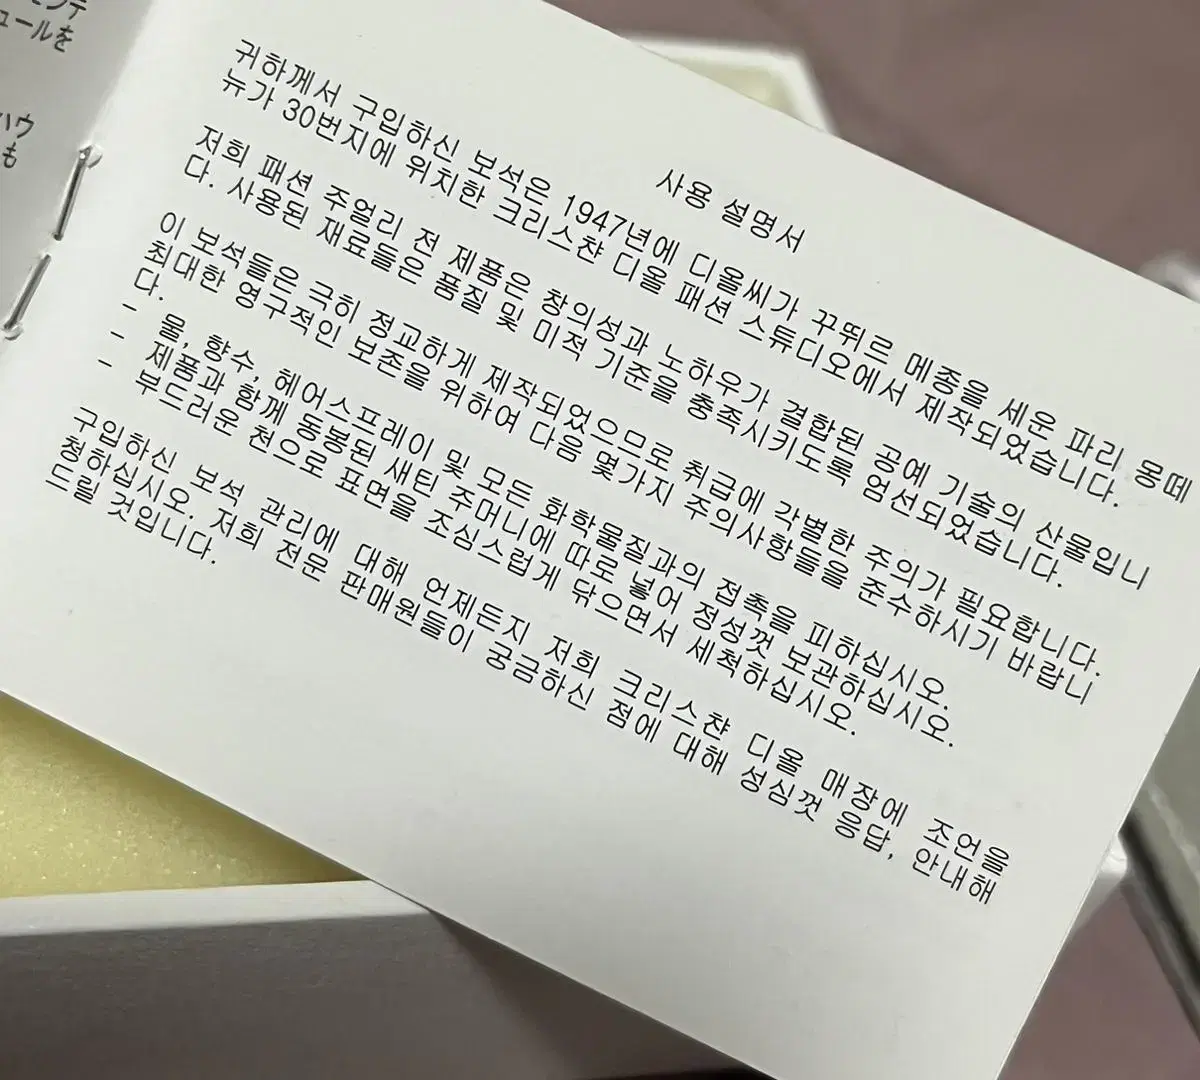 ュールを
ハウ
も
사용 설명서
귀하께서 구입하신 보석은 1947년에 디올씨가 꾸뛰르 메종을 세운 파리 몽떼
뉴가 30번지에 위치한 크리스챤 디올 패션 스튜디오에서 제작되었습니다.
저희 패션 주얼리 전 제품은 창의성과 노하우가 결합된 공예 기술의 산물입니
다. 사용된 재료들은 품질 및 미적 기준을 충족시키도록 엄선되었습니다.
이 보석들은 극히 정교하게 제작되었으므로 취급에 각별한 주의가 필요합니다.
최대한 영구적인 보존을 위하여 다음 몇가지 주의사항들을 준수하시기 바랍니
다.
- 물, 향수, 헤어스프레이 및 모든 화학물질과의 접촉을 피하십시오.
- 제품과 함께 동봉된 새틴 주머니에 따로 넣어 정성껏 보관하십시오.
- 부드러운 천으로 표면을 조심스럽게 닦으면서 세척하십시오.
구입하신 보석 관리에 대해 언제든지 저희 크리스챤 디올 매장에 조언을
청하십시오. 저희 전문 판매원들이 궁금하신 점에 대해 성심껏 응답, 안내해
드릴 것입니다.